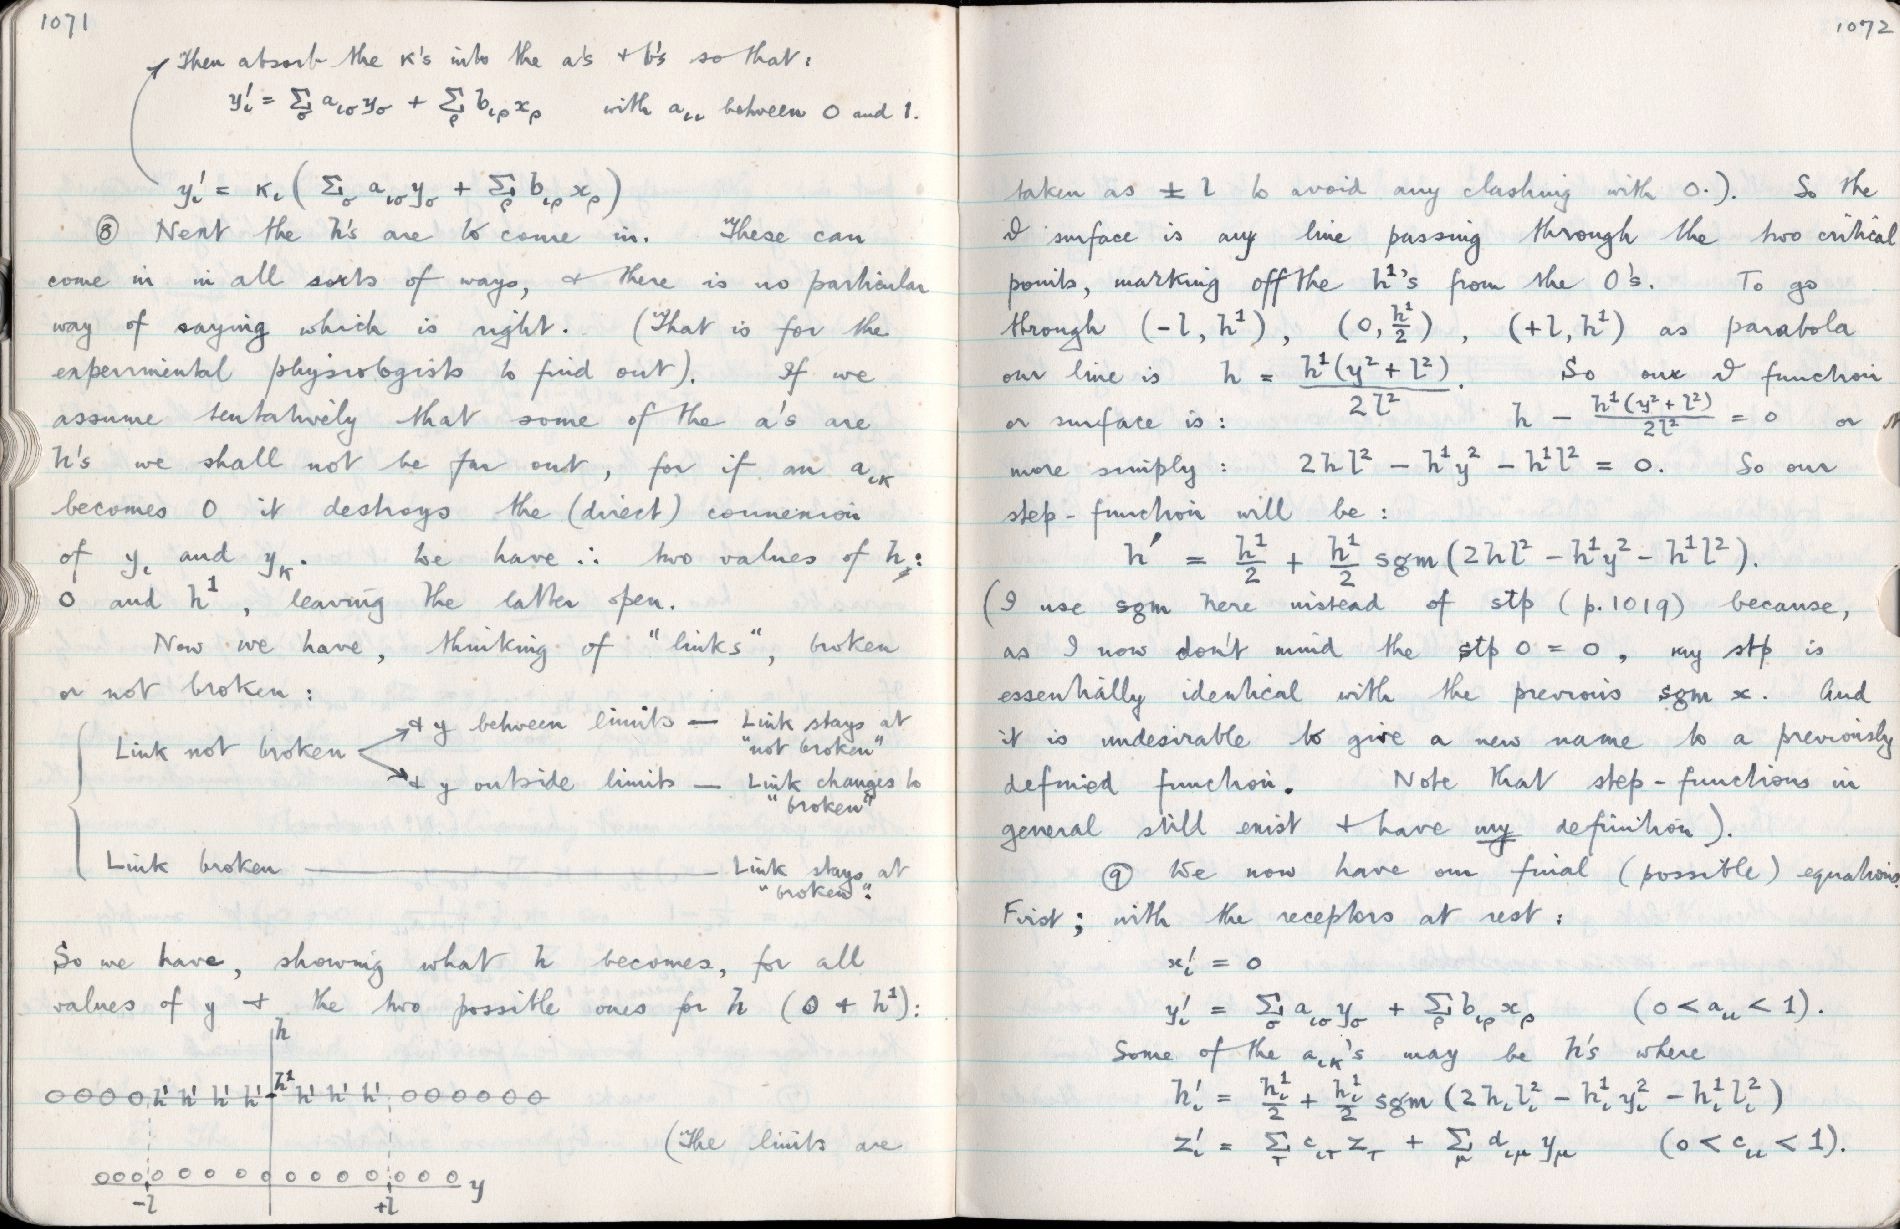 1071
Then absorb the κ's into the a's + b's so that:
y'ᵢ = Σ_σ a_ισ y_σ + Σ_ρ b_ιρ x_ρ with a_ιι between 0 and 1.
y'ᵢ = κ_ι ( Σ_σ a_ισ y_σ + Σ_ρ b_ιρ x_ρ )
⑧ Next the h's are to come in. These can
come in in all sorts of ways, + there is no particular
way of saying which is right. (That is for the
experimental physiologists to find out). If we
assume tentatively that some of the a's are
h's we shall not be far out, for if an a_ικ
becomes 0 it destroys the (direct) connexion
of y_ι and y_κ. We have ∴ two values of h:
0 and h¹, leaving the latter open.
Now we have, thinking of "links", broken
or not broken:
+ y between limits — Link stays at
"not broken"
Link not broken
+ y outside limits — Link changes to
"broken"
Link broken ——— Link stays at
"broken".
So we have, showing what h becomes, for all
values of y + the two possible ones for h (0 + h¹):
h
h¹
o o o o h¹ h¹ h¹ h¹ h¹ h¹ h¹ o o o o o o
(The limits are
o o o o o o o o o o o o o o o o y
-l +l
1072
taken as ± l to avoid any clashing with 0.). So the
surface is any line passing through the two critical
points, marking off the h¹'s from the 0's. To go
through (-l, h¹), (0, h¹/2), (+l, h¹) as parabola
our line is h = h¹(y² + l²)/2l². So our function
or surface is: h - h¹(y² + l²)/2l² = 0 or
more simply: 2hl² - h¹y² - h¹l² = 0. So our
step-function will be:
h' = h¹/2 + h¹/2 sgm (2hl² - h¹y² - h¹l²).
(I use sgm here instead of stp (p.1019) because,
as I now don't mind the stp 0 = 0, my stp is
essentially identical with the previous sgm x. And
it is undesirable to give a new name to a previously
defined function. Note that step-functions in
general still exist + have my definition).
⑨ We now have our final (possible) equations
First; with the receptors at rest:
x'_ι = 0
y'_ι = Σ_σ a_ισ y_σ + Σ_ρ b_ιρ x_ρ (0 < a_ιι < 1).
Some of the a_ικ's may be h's where
h'_ι = h¹_ι/2 + h¹_ι/2 sgm (2h_ι l²_ι - h¹_ι y²_ι - h¹_ι l²_ι)
z'_ι = Σ_τ c_ιτ z_τ + Σ_μ d_ιμ y_μ (0 < c_ιι < 1).